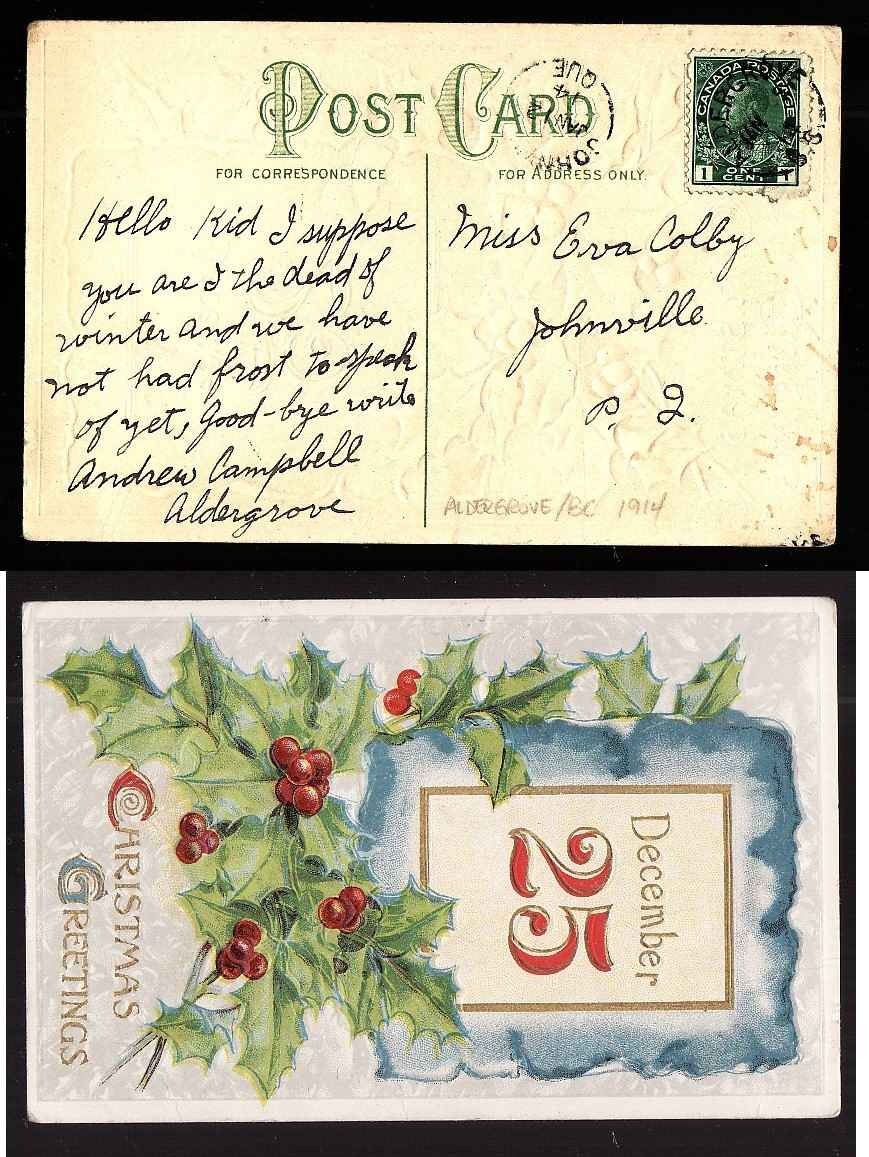 POST CARD
FOR CORRESPONDENCE
FOR ADDRESS ONLY.
CANADA POSTAGE
1 ONE CENT 1
JAN
JAN
14
QUE
Hello Kid I suppose
you are I the dead of
winter and we have
not had frost to speak
of yet, Good-bye write
Andrew Campbell
Aldergrove
Miss Eva Colby
Johnville
P. Q.
ALDERGROVE/BC 1914
December
25
CHRISTMAS
GREETINGS